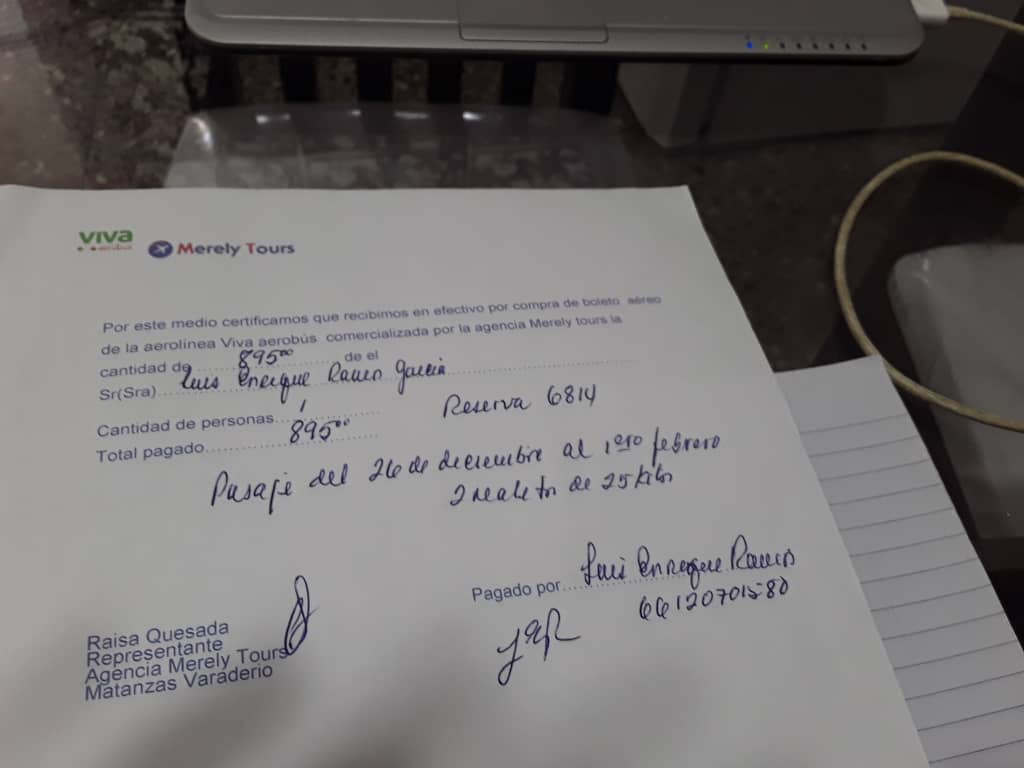 viva
aerobus
Merely Tours
Por este medio certificamos que recibimos en efectivo por compra de boleto aéreo
de la aerolínea Viva aerobús comercializada por la agencia Merely tours la
cantidad de 895.00 de el
Sr(Sra) Luis Enrique Ramos Garcia
Cantidad de personas 1
Reserva 6814
Total pagado 895.00
Pasaje del 26 de diciembre al 1ero febrero
2 maletas de 25 kilos
Pagado por Luis Enrique Ramos
66120701580
Raisa Quesada
Representante
Agencia Merely Tours
Matanzas Varaderio